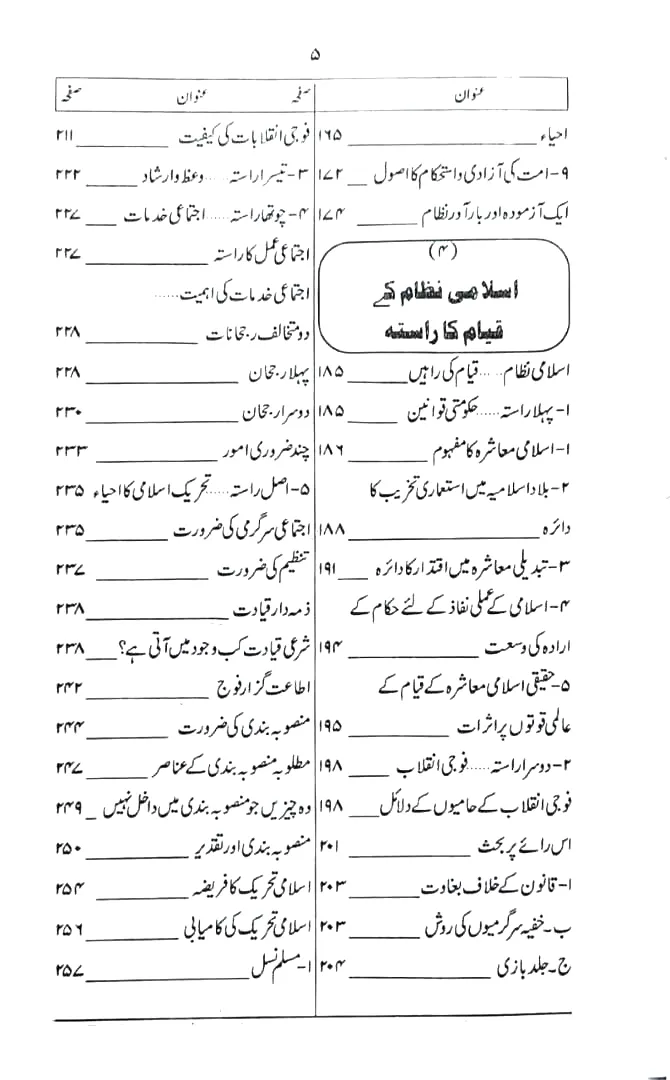 ۵
عنوان صفحہ
احیاء ۱۶۵
۹- امت کی آزادی واستحکام کا اصول ۱۷۲
ایک آزمودہ اور بارآور نظام ۱۷۴
(۴)
اسلامی نظام کے
قیام کا راستہ
اسلامی نظام.....قیام کی راہیں ۱۸۵
۱- پہلا راستہ.....حکومتی قوانین ۱۸۵
۱- اسلامی معاشرہ کا مفہوم ۱۸۶
۲- بلاد اسلامیہ میں استعماری تخریب کا
دائرہ ۱۸۸
۳- تبدیلی معاشرہ میں اقتدار کا دائرہ ۱۹۱
۴- اسلامی کے عملی نفاذ کے لئے حکام کے
ارادہ کی وسعت ۱۹۴
۵- حقیقی اسلامی معاشرہ کے قیام کے
عالمی قوتوں پر اثرات ۱۹۵
۲- دوسرا راستہ.....فوجی انقلاب ۱۹۸
فوجی انقلاب کے حامیوں کے دلائل ۱۹۸
اس رائے پر بحث ۲۰۱
ا- قانون کے خلاف بغاوت ۲۰۳
ب- خفیہ سرگرمیوں کی روش ۲۰۳
ج- جلد بازی ۲۰۴
عنوان صفحہ
فوجی انقلابات کی کیفیت ۲۱۱
۳- تیسرا راستہ.....وعظ وارشاد ۲۲۲
۴- چوتھا راستہ.....اجتماعی خدمات ۲۲۷
اجتماعی عمل کا راستہ ۲۲۷
اجتماعی خدمات کی اہمیت.....
دو متخالف رجحانات ۲۲۸
پہلا رجحان ۲۲۸
دوسرا رجحان ۲۳۰
چند ضروری امور ۲۳۳
۵- اصل راستہ.....تحریک اسلامی کا احیاء ۲۳۵
اجتماعی سرگرمی کی ضرورت ۲۳۵
تنظیم کی ضرورت ۲۳۷
ذمہ دار قیادت ۲۳۸
شرعی قیادت کب وجود میں آتی ہے؟ ۲۳۸
اطاعت گزار فوج ۲۴۲
منصوبہ بندی کی ضرورت ۲۴۴
مطلوبہ منصوبہ بندی کے عناصر ۲۴۷
وہ چیزیں جو منصوبہ بندی میں داخل نہیں ۲۴۹
منصوبہ بندی اور تقدیر ۲۵۰
اسلامی تحریک کا فریضہ ۲۵۴
اسلامی تحریک کی کامیابی ۲۵۶
۱- مسلم نسل ۲۵۷